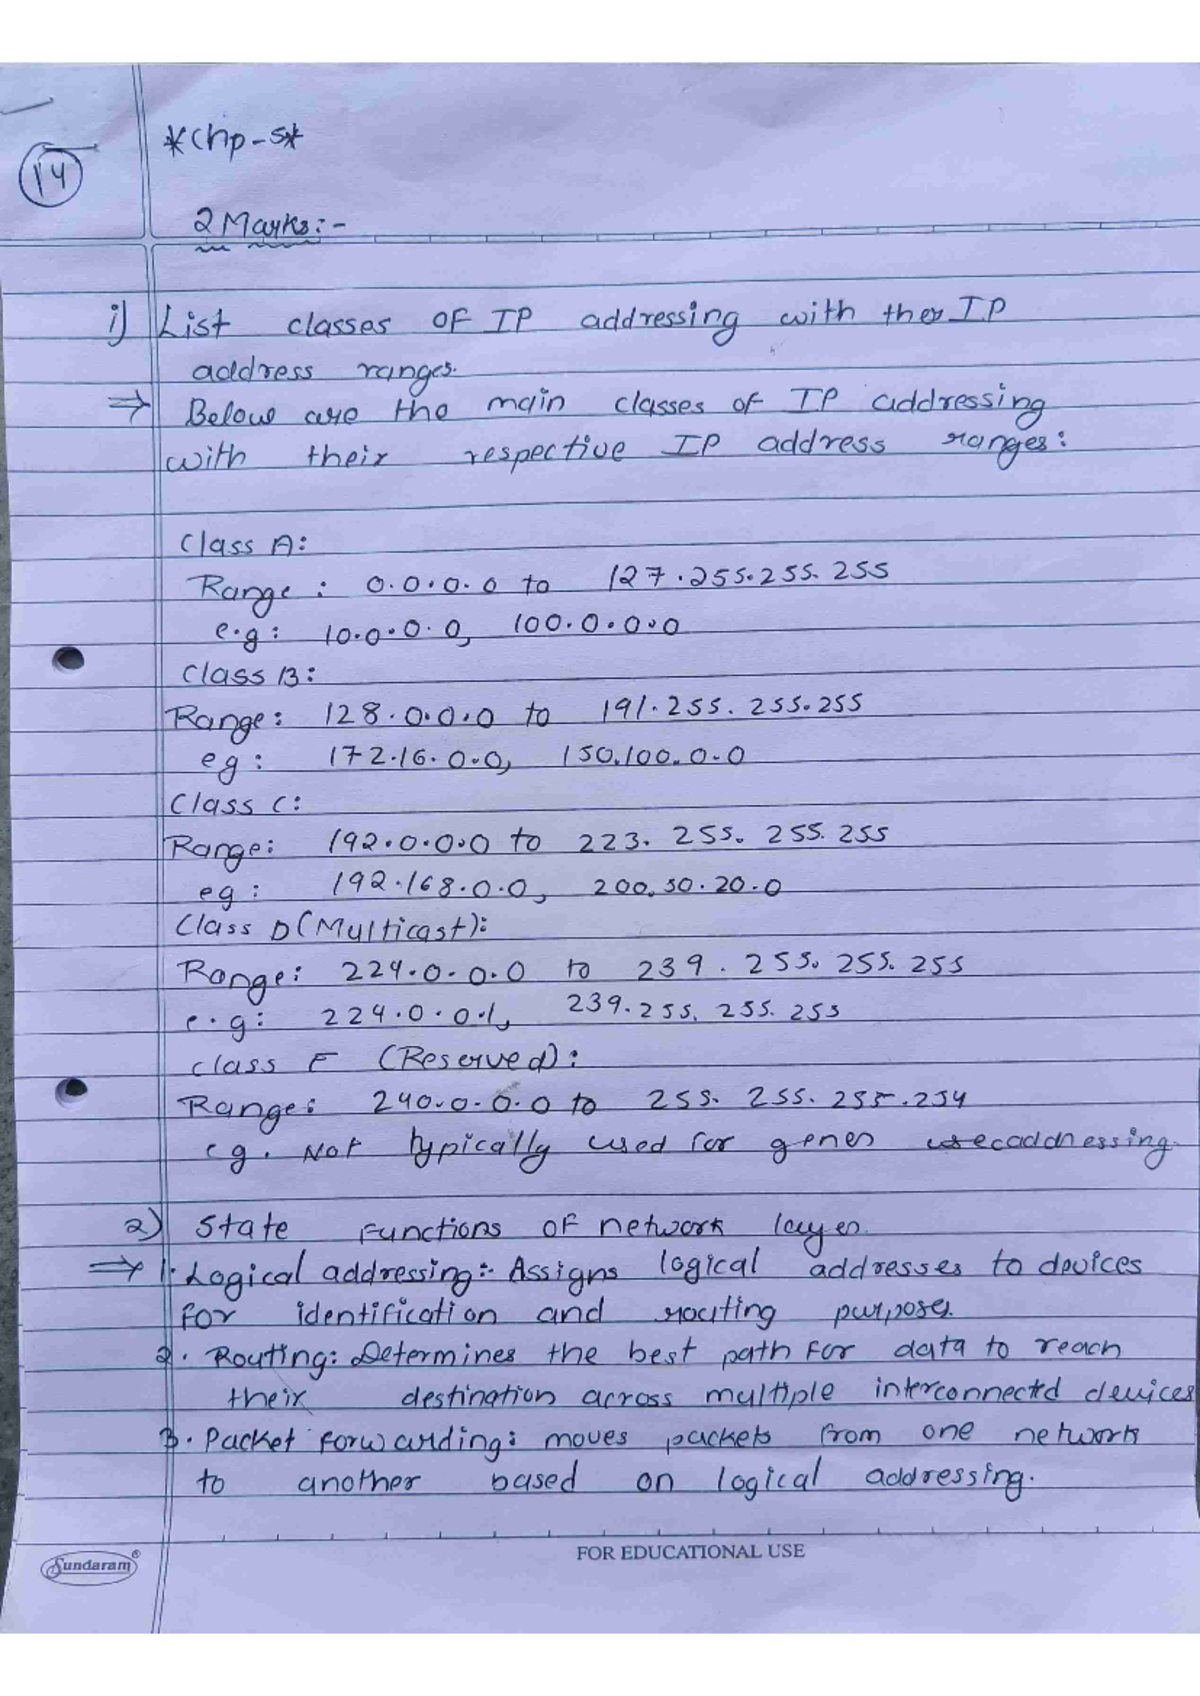 14
*Chp-5*
2 Marks:-
i) List classes OF IP addressing with their IP
address ranges.
⇒ Below are the main classes of IP addressing
with their respective IP address ranges:
Class A:
Range : 0.0.0.0 to 127.255.255.255
e.g: 10.0.0.0, 100.0.0.0
Class B:
Range: 128.0.0.0 to 191.255.255.255
eg: 172.16.0.0, 150.100.0.0
Class C:
Range: 192.0.0.0 to 223.255.255.255
eg: 192.168.0.0, 200.50.20.0
Class D (Multicast):
Range: 224.0.0.0 to 239.255.255.255
e.g: 224.0.0.1, 239.255.255.255
class E (Reserved):
Range: 240.0.0.0 to 255.255.255.254
eg. Not typically used for addressing.
2) State Functions OF network layer.
⇒ 1. Logical addressing:- Assigns logical addresses to devices
for identification and routing purposes.
2. Routing: Determines the best path for data to reach
their destination across multiple interconnected devices
3. Packet forwarding: moves packets from one network
to another based on logical addressing.
Sundaram®
FOR EDUCATIONAL USE